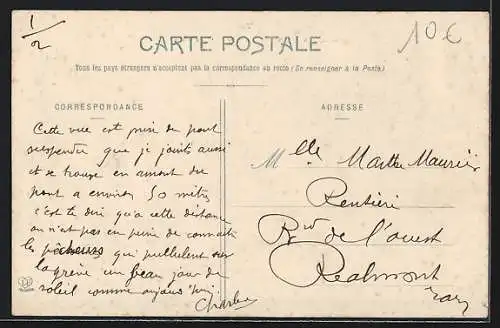 1/2
10€
CARTE POSTALE
Tous les pays étrangers n'acceptent pas la correspondance au recto (Se renseigner à la Poste)
CORRESPONDANCE
ADRESSE
Cette vue est prise du pont
suspendu que je joints aussi
et se trouve en amont du
pont a environ 50 mètres
c'est te dire qu'a cette distance
on n'est pas en peine de connaitre
les pêcheurs qui pullulent sur
la grève un beau jour de
soleil comme aujourd'hui.
Charles
Mlle Marthe Maurier
Rentière
Bd de l'ouest
Réalmont
Tarn